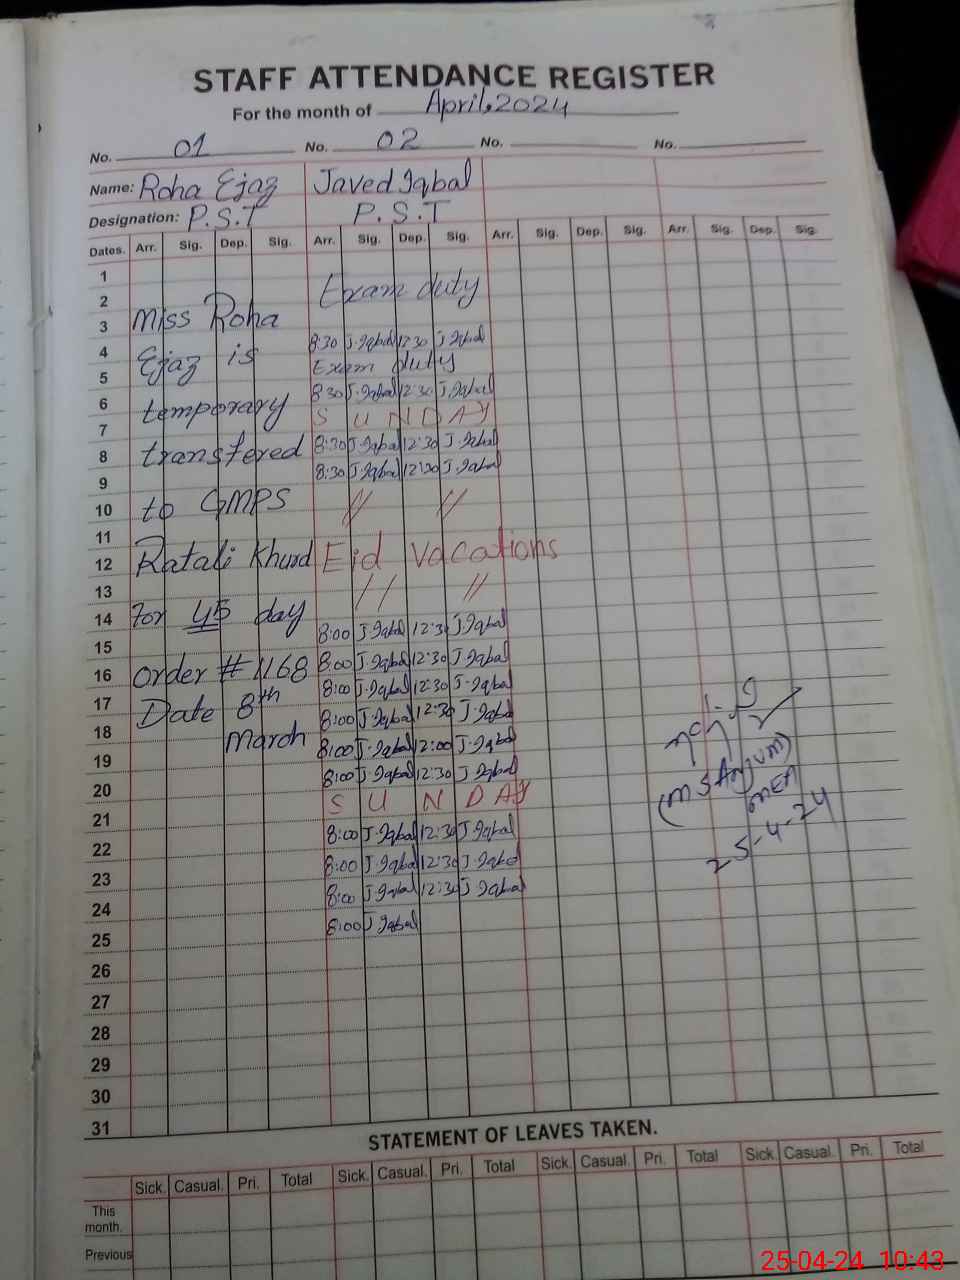 STAFF ATTENDANCE REGISTER
For the month of April, 2024
No. 01 No. 02 No. No.
Name: Roha Ejaz Javed Iqbal
Designation: P.S.T P.S.T
Dates. Arr. Sig. Dep. Sig. Arr. Sig. Dep. Sig. Arr. Sig. Dep. Sig. Arr. Sig. Dep. Sig.
1
2 Exam duty
3 Miss Roha
4 Ejaz is 8:30 J.Iqbal 12:30 J.Iqbal
5 Exam duty
6 temporary 8:30 J.Iqbal 12:30 J.Iqbal
7 SUNDAY
8 transfered 8:30 J.Iqbal 12:30 J.Iqbal
9 8:30 J.Iqbal 12:30 J.Iqbal
10 to GMPS // //
11
12 Ratali Khurd Eid vacations
13 // //
14 For 45 day
15 8:00 J.Iqbal 12:30 J.Iqbal
16 order # 1168 8:00 J.Iqbal 12:30 J.Iqbal
17 Date 8th 8:00 J.Iqbal 12:30 J.Iqbal
18 March 8:00 J.Iqbal 12:30 J.Iqbal
19 8:00 J.Iqbal 12:00 J.Iqbal
20 8:00 J.Iqbal 12:30 J.Iqbal
21 SUNDAY
22 8:00 J.Iqbal 12:30 J.Iqbal
23 8:00 J.Iqbal 12:30 J.Iqbal
24 8:00 J.Iqbal 12:30 J.Iqbal
25 8:00 J.Iqbal
26
27
28
29
30
31
(M S Anjum)
MEA
25-4-24
STATEMENT OF LEAVES TAKEN.
Sick. Casual. Pri. Total Sick. Casual. Pri. Total Sick. Casual. Pri. Total Sick. Casual. Pri. Total
This month.
Previous
25-04-24 10:43